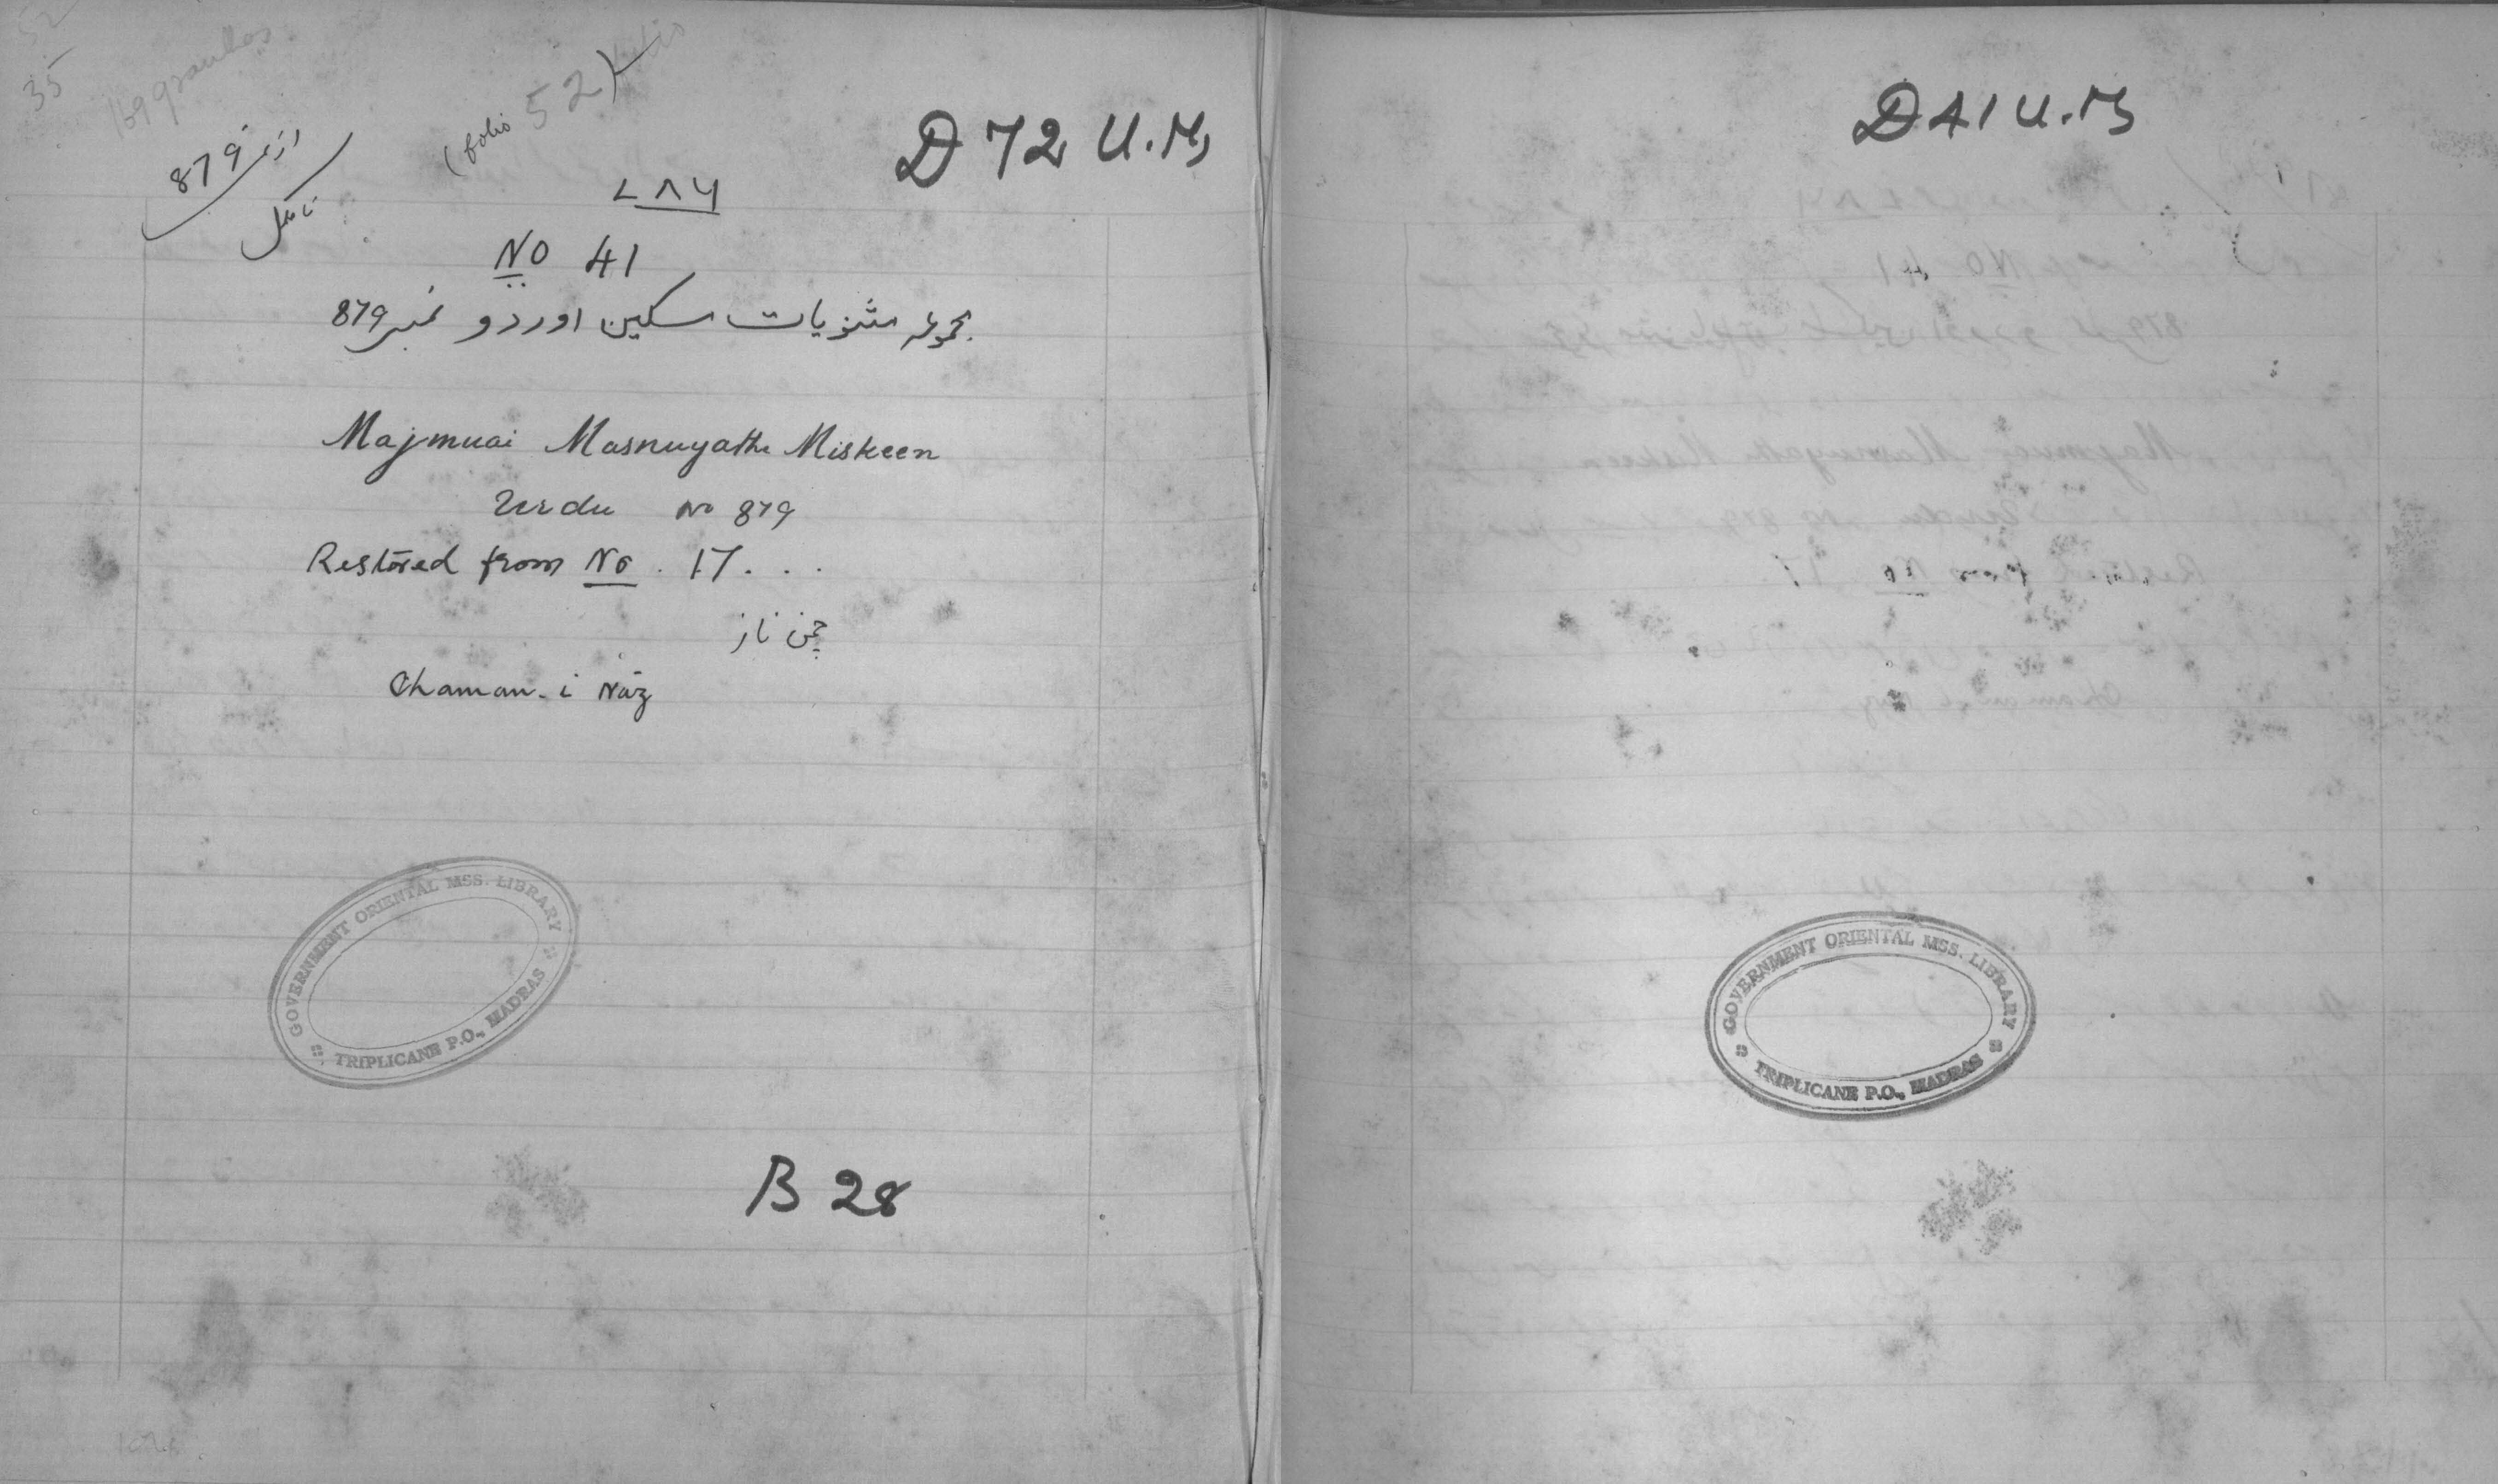 35
از نمبر 879
(folio 52)
D 72 U.M,
۷۸۶
No 41
مجموعہ مثنویات مسکین اوردو نمبر 879
Majmuai Masnuyathe Miskeen
Urdu No 879
Restored from No. 17...
چمن ناز
Chaman-i Nāz
GOVERNMENT ORIENTAL MSS. LIBRARY
TRIPLICANE P.O., MADRAS
B 28
D 41 U.M
GOVERNMENT ORIENTAL MSS. LIBRARY
TRIPLICANE P.O., MADRAS